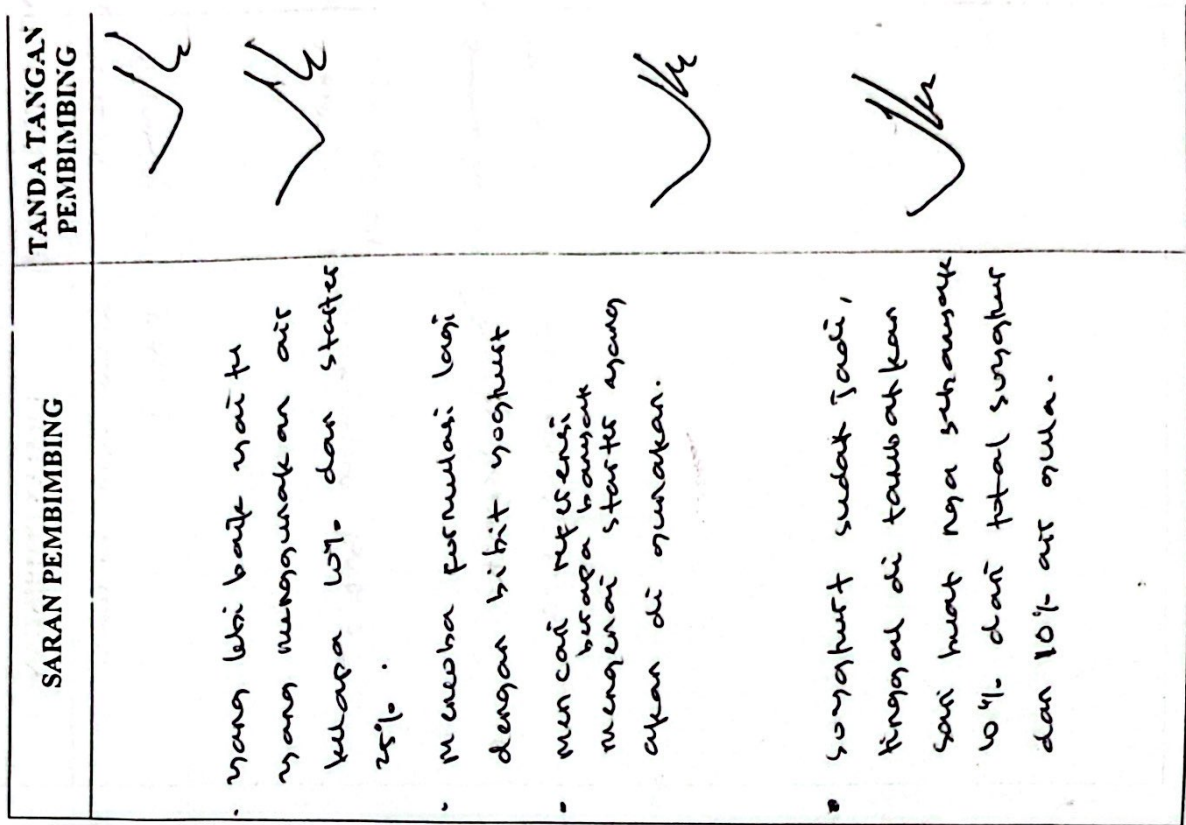 SARAN PEMBIMBING
TANDA TANGAN
PEMBIMBING
• yang lebi baik yaitu
yang menggunakan air
kelapa 10% dan starter
25%.
• Mencoba formulasi lagi
dengan bibit yoghurt
• mencari referensi
berapa banyak
mengenai starter yang
akan di gunakan.
• soyghurt sudah jadi,
tinggal di tambahkan
sari buat nga sebanyak
10% dari total soyghurt
dan 10% air gula.